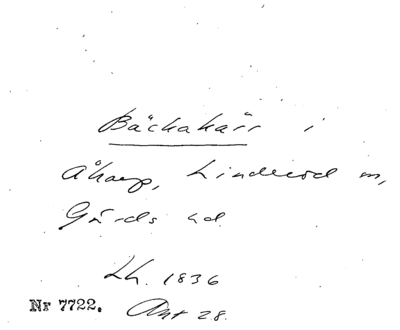 Bäckakärr i
Åkarp, Linderöd sn,
Gärds hd
Lh. 1836
Nr 7722. Akt 28.